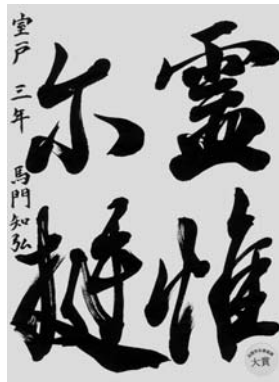 霊惟
尓挺
室戸 三年 馬門知弘
大賞